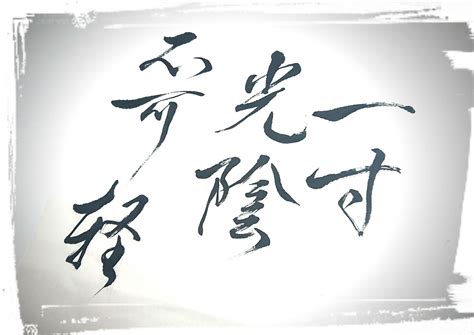 一寸
光陰
不可
軽